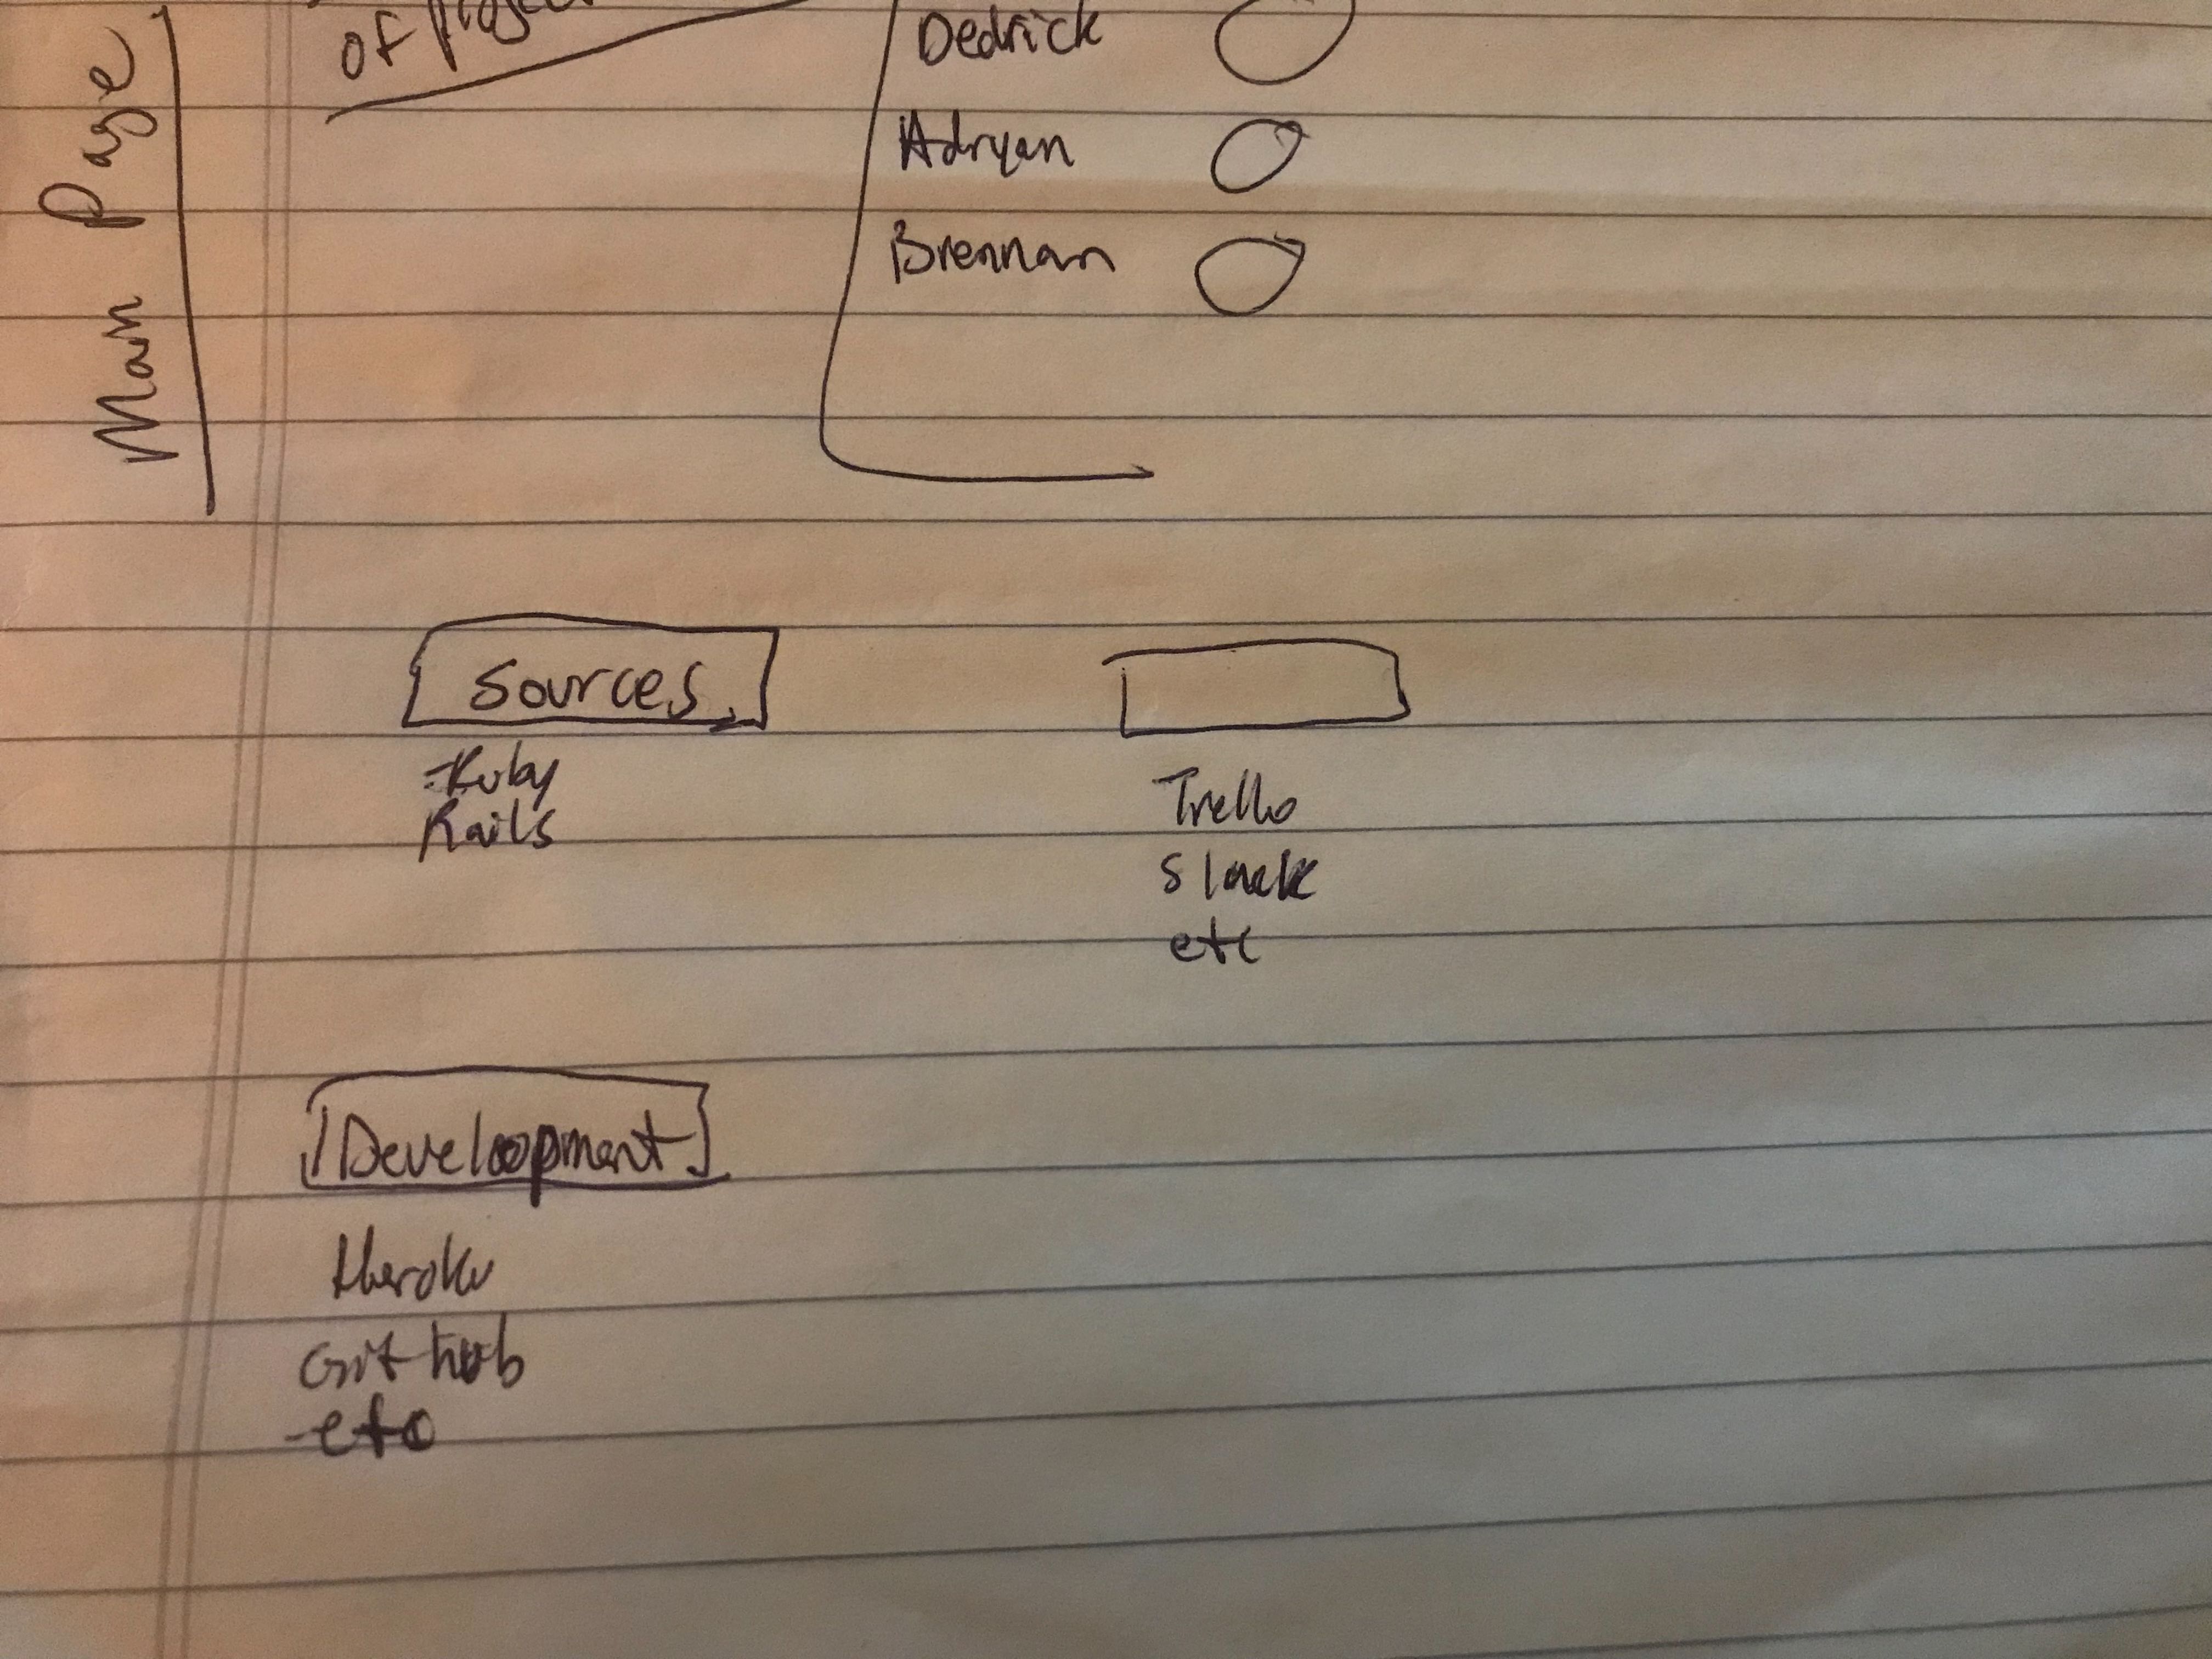 of project
Dedrick
Adryan
Brennan
Main Page
Sources
Ruby
Rails
Trello
Slack
etc
Development
Heroku
Github
etc